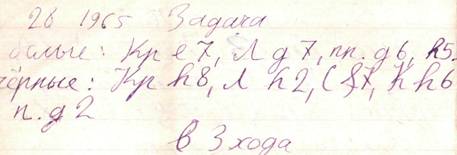 26 1965 Задача
белые: Кр е7, Л д7, пп. д6, h5.
чёрные: Кр h8, Л h2, С g7, К h6
п. д2
в 3 хода